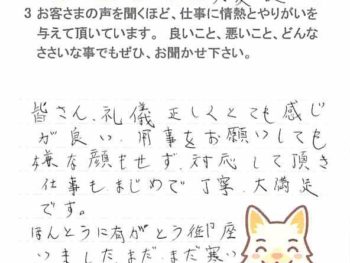 3 お客さまの声を聞くほど、仕事に情熱とやりがいを
与えて頂いています。 良いこと、悪いこと、どんな
ささいな事でもぜひ、お聞かせ下さい。
皆さん、礼儀正しくとても感じ
が良い、用事をお願いしても
嫌な顔もせず、対応して頂き
仕事もまじめで丁寧、大満足
です。
ほんとうに有がとう御座
いました、まだ、まだ寒い